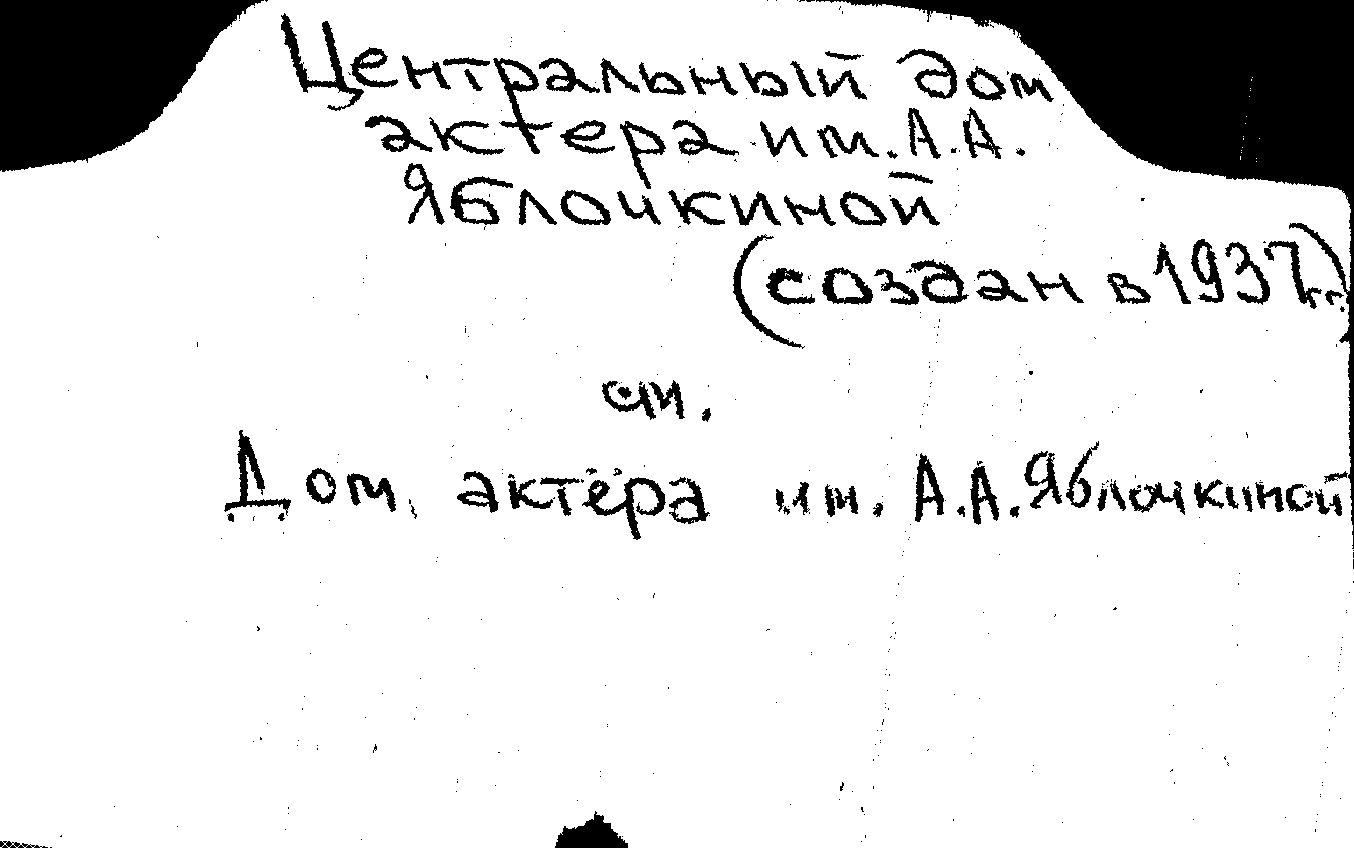 Центральный дом
актера им. А.А.
Яблочкиной
(создан в 1937 г.)
см.
Дом актёра им. А.А. Яблочкиной